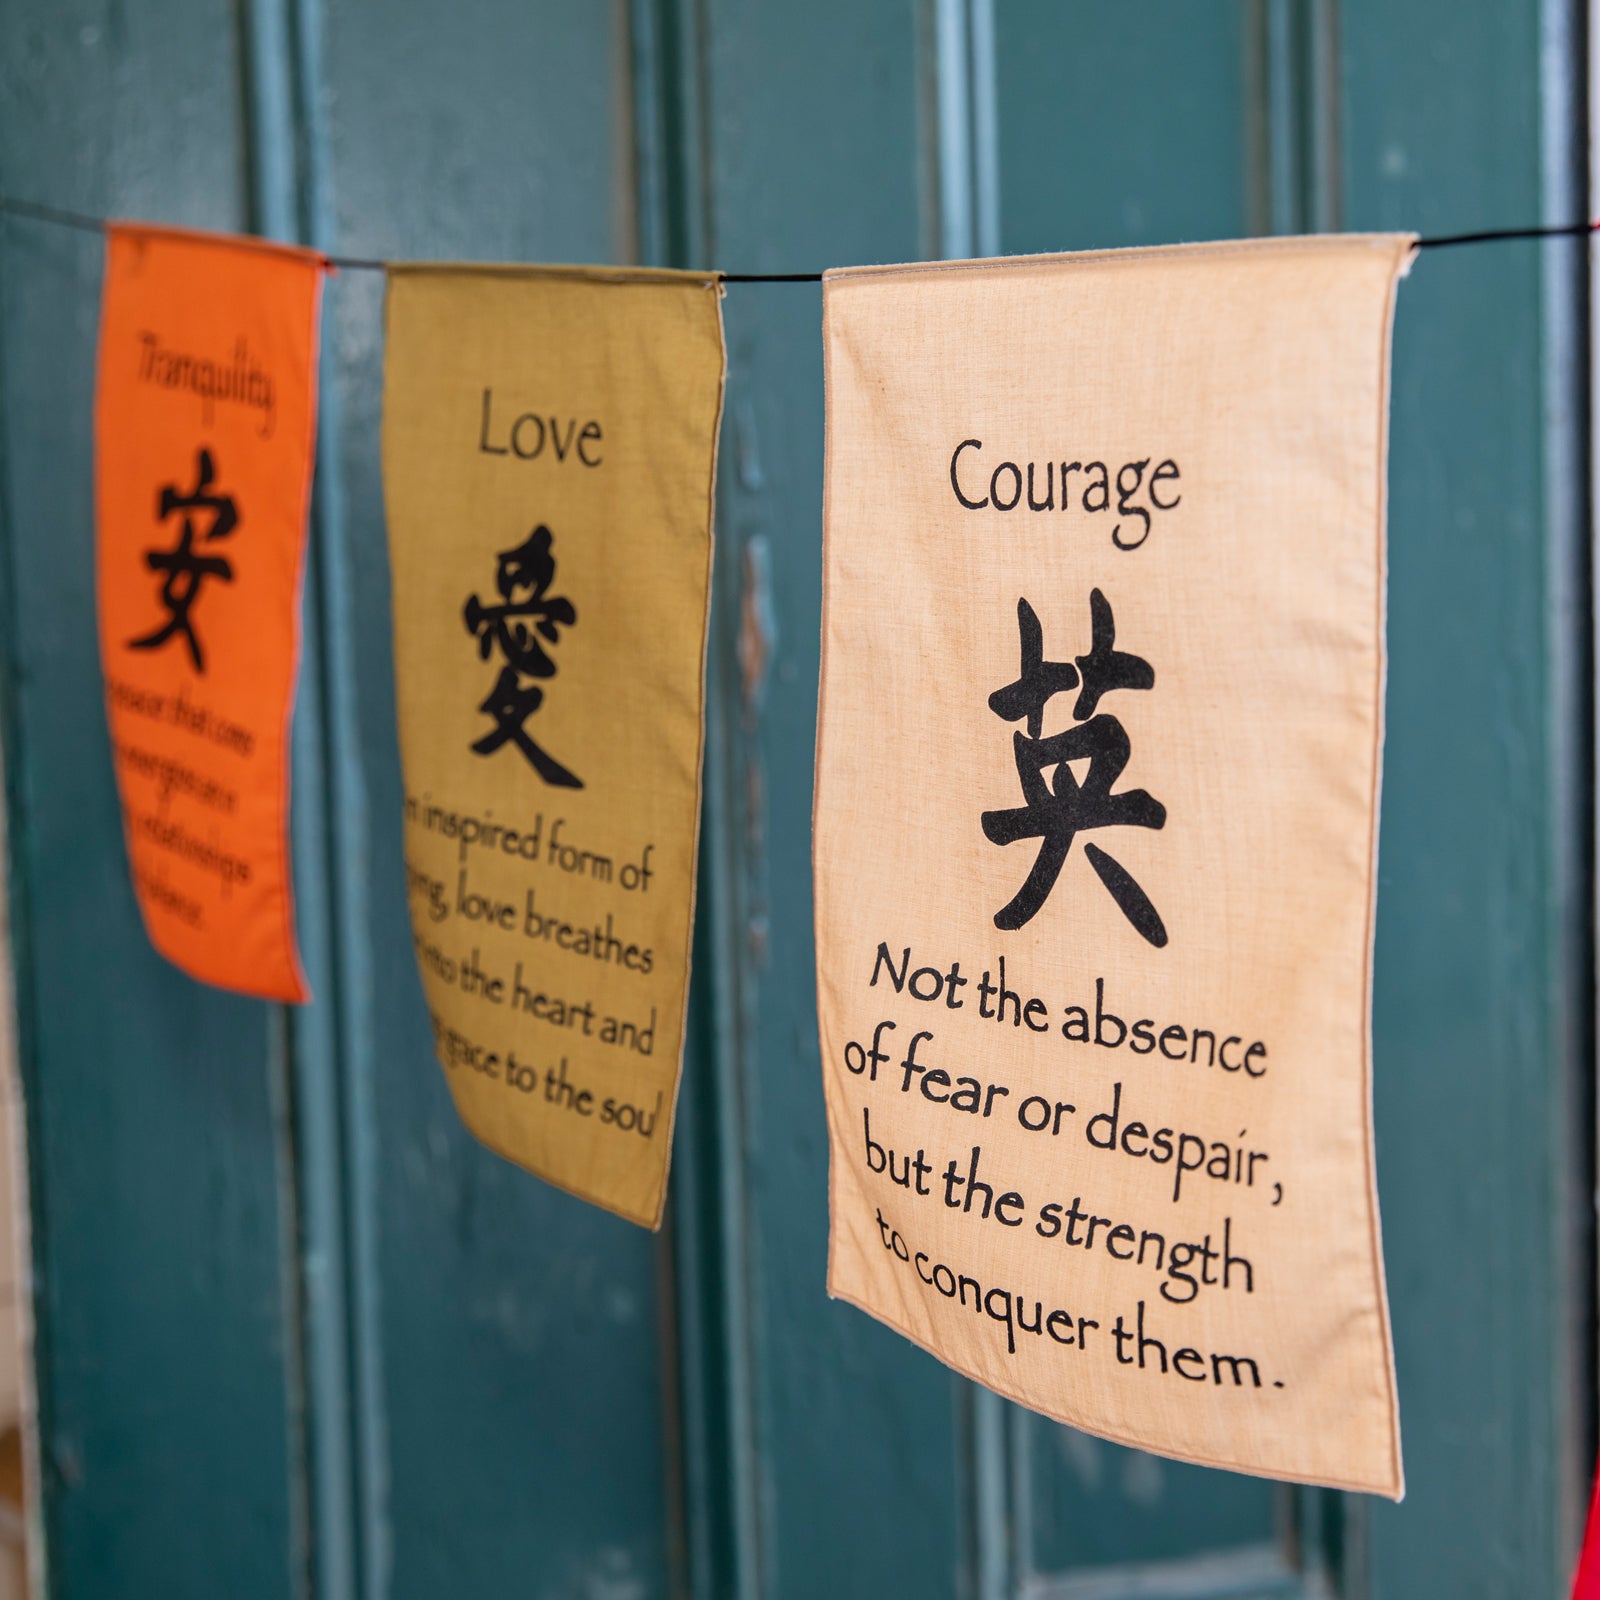 Tranquility
安
peace that comes
energies are
relationships
Love
愛
inspired form of
love breathes
into the heart and
grace to the soul
Courage
英
Not the absence
of fear or despair,
but the strength
to conquer them.